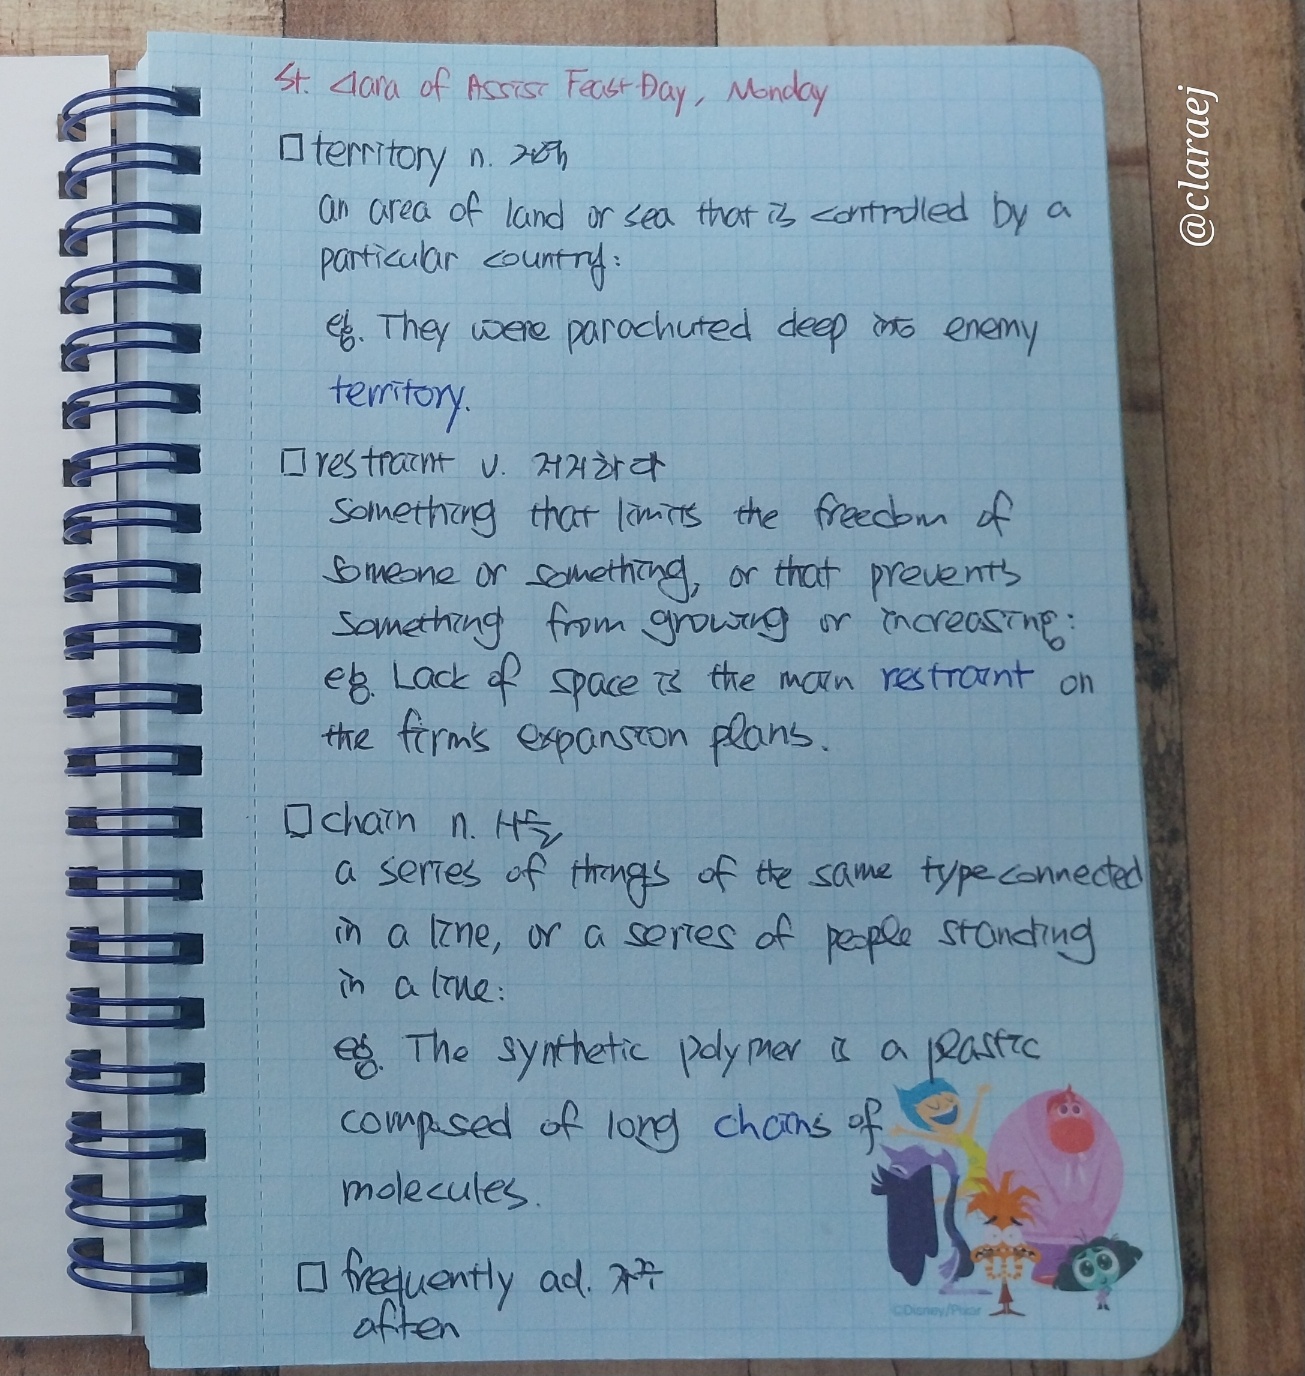 St. Clara of Assisi Feast Day, Monday
@claraej
□ territory n. 지역
an area of land or sea that is controlled by a
particular country:
eg. They were parachuted deep into enemy
territory.
□ restraint v. 저지하다
something that limits the freedom of
someone or something, or that prevents
something from growing or increasing:
eg. Lack of space is the main restraint on
the firm's expansion plans.
□ chain n. 사슬
a series of things of the same type connected
in a line, or a series of people standing
in a line:
eg. The synthetic polymer is a plastic
composed of long chains of
molecules.
□ frequently ad. 자주
often
©Disney/Pixar